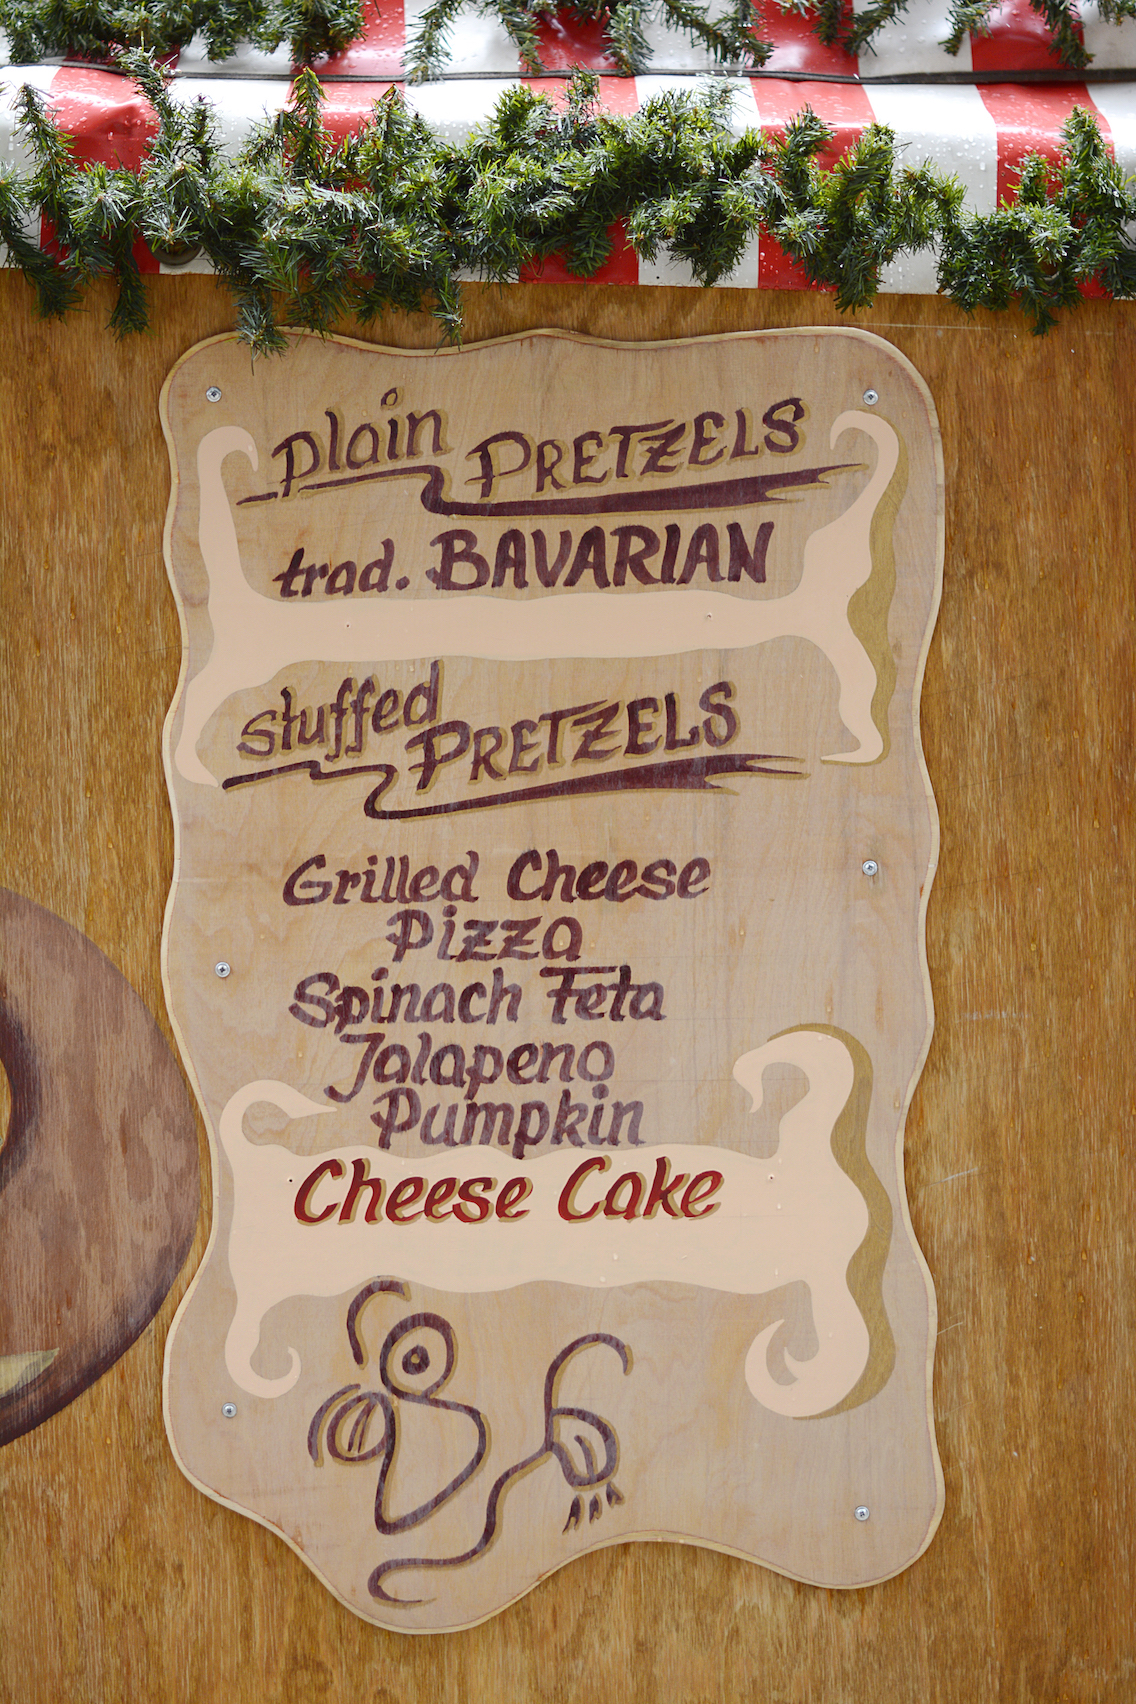 plain PRETZELS
trad. BAVARIAN
stuffed PRETZELS
Grilled Cheese
Pizza
Spinach Feta
Jalapeno
Pumpkin
Cheese Cake